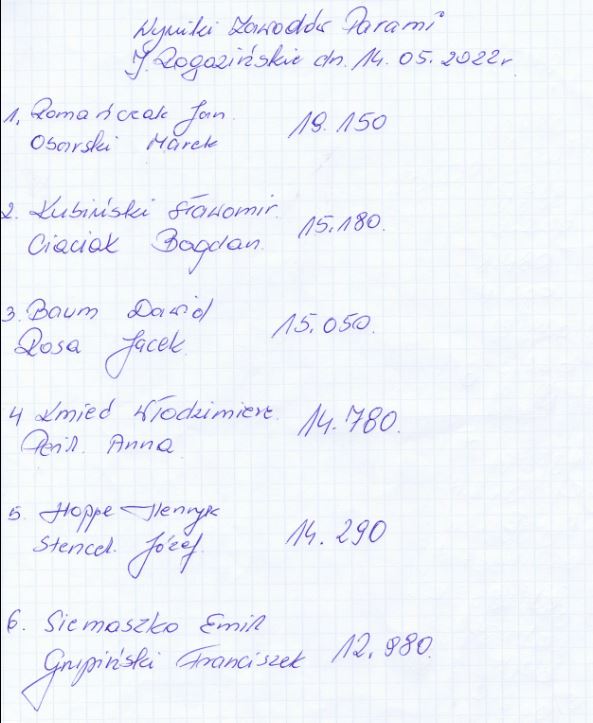 Wyniki Zawodów Parami
J. Rogozińskie dn. 14.05.2022r
1. Romańczak Jan 19.150
Obarski Marek
2. Kubiński Sławomir 15.180.
Ciaciak Bogdan
3. Baum Dawid 15.050.
Rosa Jacek
4 Kmieć Włodzimierz 14.780.
Anna
5. Hoppe Henryk 14.290
Stencel Józef
6. Siemaszko Emil
Grupiński Franciszek 12.980.